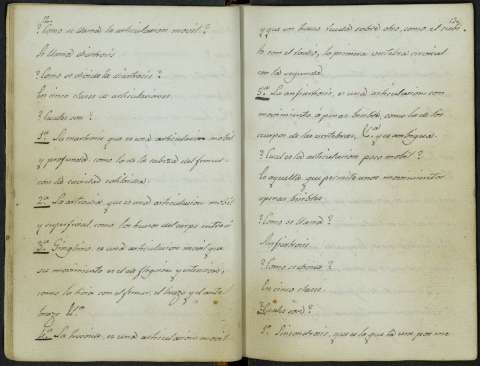 ? Como se llama la articulacion mobil?
Se llama diartrosis
? Como se divide la diartrosis?
En cinco clases de articulaciones.
? Cuales son?
1ª La enartrosis, que es una articulacion mobil
y profunda como la de la cabeza del femur
con la cavidad cotiloidea.
2ª La artrodia, que es una articulacion mobil
y superficial, como los huesos del carpo entre si
3ª Ginglimo, es una articulacion movil que
sus movimientos es el de flexion y extension,
como la tibia con el femur, el brazo y el ante
brazo &ª
4ª La trocoide, es una articulacion movil
y que un hueso rueda sobre otro, como el cubi
to con el radio, la primera vertebra cervical
con la segunda.
5ª La anfiartrosis, es una articulacion con
movimiento apenas sensible, como la de los
cuerpos de las vertebras, &ª y es ambigua.
? Cual es la articulacion poco mobil?
Es aquella que permite unos movimientos
apenas sensibles.
? Como se llama?
Anfiartrosis
? Como se divide?
En cinco clases
? Cuales son?
1ª Sincondrosis, que es la que ta un por me